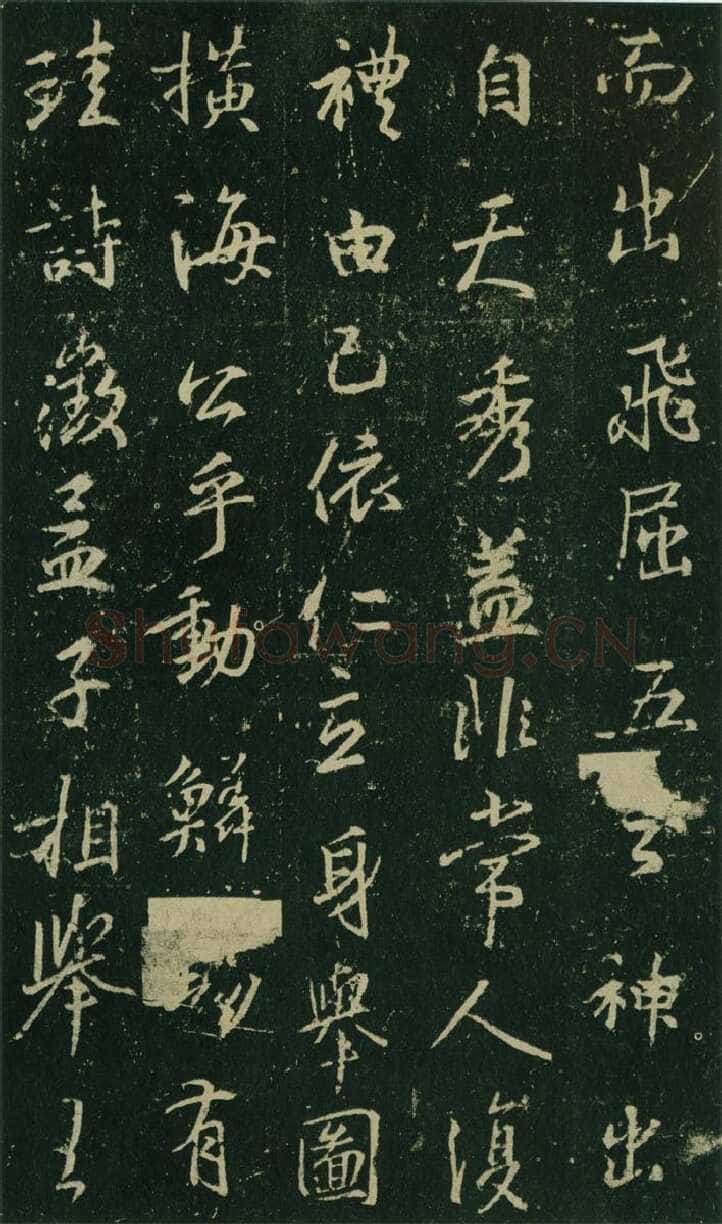 而出飛屈五神出
自天秀盖非常人復
禮由己依仁立身舉圖
橫海公乎動鱗有
珪詩徵孟子相舉王
Shufawang.CN